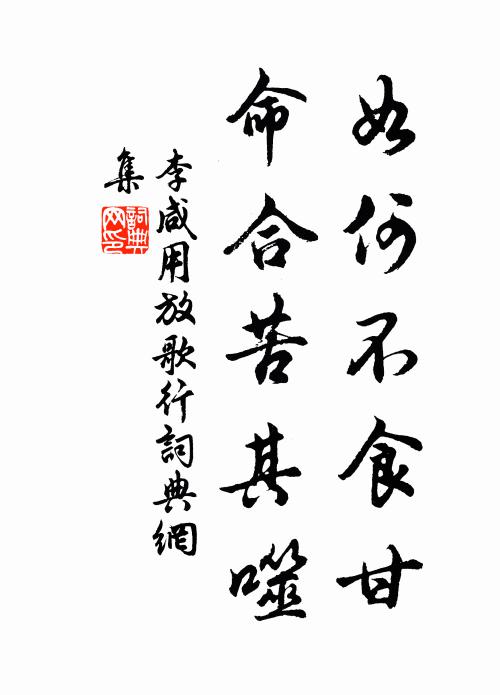 如何不食甘
命合苦其噬
李咸用放歌行詞典網
集
詞典
网印